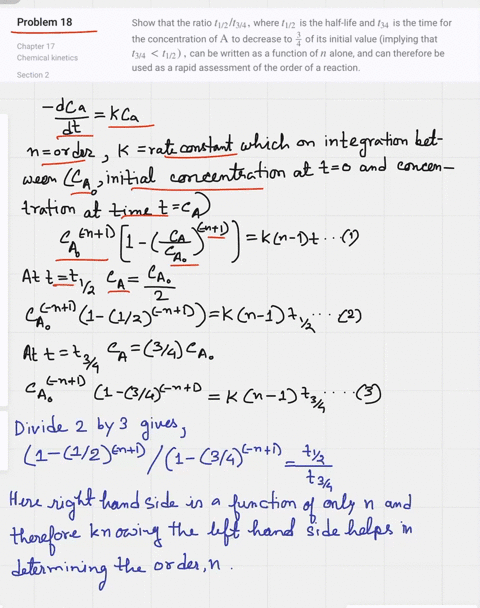 Problem 18
Chapter 17
Chemical kinetics
Section 2
Show that the ratio t1/2/t3/4, where t1/2 is the half-life and t34 is the time for
the concentration of A to decrease to 3/4 of its initial value (implying that
t3/4 < t1/2), can be written as a function of n alone, and can therefore be
used as a rapid assessment of the order of a reaction.
-dCa/dt = KCa
n=order, K = rate constant which on integration bet-
ween (CA0, initial concentration at t=0 and concen-
tration at time t = CA)
CA0^(-n+1) [1-(CA/CA0)^(-n+1)] = K(n-1)t ... (1)
At t = t1/2 CA = CA0/2
CA0^(-n+1) (1-(1/2)^(-n+1)) = K(n-1) t1/2 ... (2)
At t = t3/4 CA = (3/4) CA0
CA0^(-n+1) (1-(3/4)^(-n+1) = K(n-1) t3/4 .... (3)
Divide 2 by 3 gives,
(1-(1/2)^(-n+1) / (1-(3/4)^(-n+1) = t1/2/t3/4
Here right hand side is a function of only n and
therefore knowing the left hand side helps in
determining the order, n.